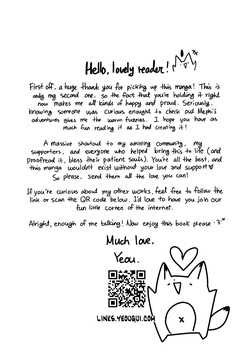 Hello, lovely reader!
First off, a huge thank you for picking up this manga! This is
only my second one, so the fact that you're holding it right
now makes me all kinds of happy and proud. Seriously,
knowing someone was curious enough to check out Mephi's
adventures gives me the warm fuzzies. I hope you have as
much fun reading it as I had creating it!
A massive shoutout to my amazing community, my
supporters, and everyone who helped bring this to life (and
proofread it, bless their patient souls). You're all the best, and
this manga wouldn't exist without your love and support
So please, Send them all the love you can!
If you're curious about my other works, feel free to follow the
link or scan the QR code below. I'd love to have you join our
fun little corner of the internet.
Alright, enough of me talking! Now enjoy this book please
Much love,
Yeou.
LINKS.YEOUGUI.COM